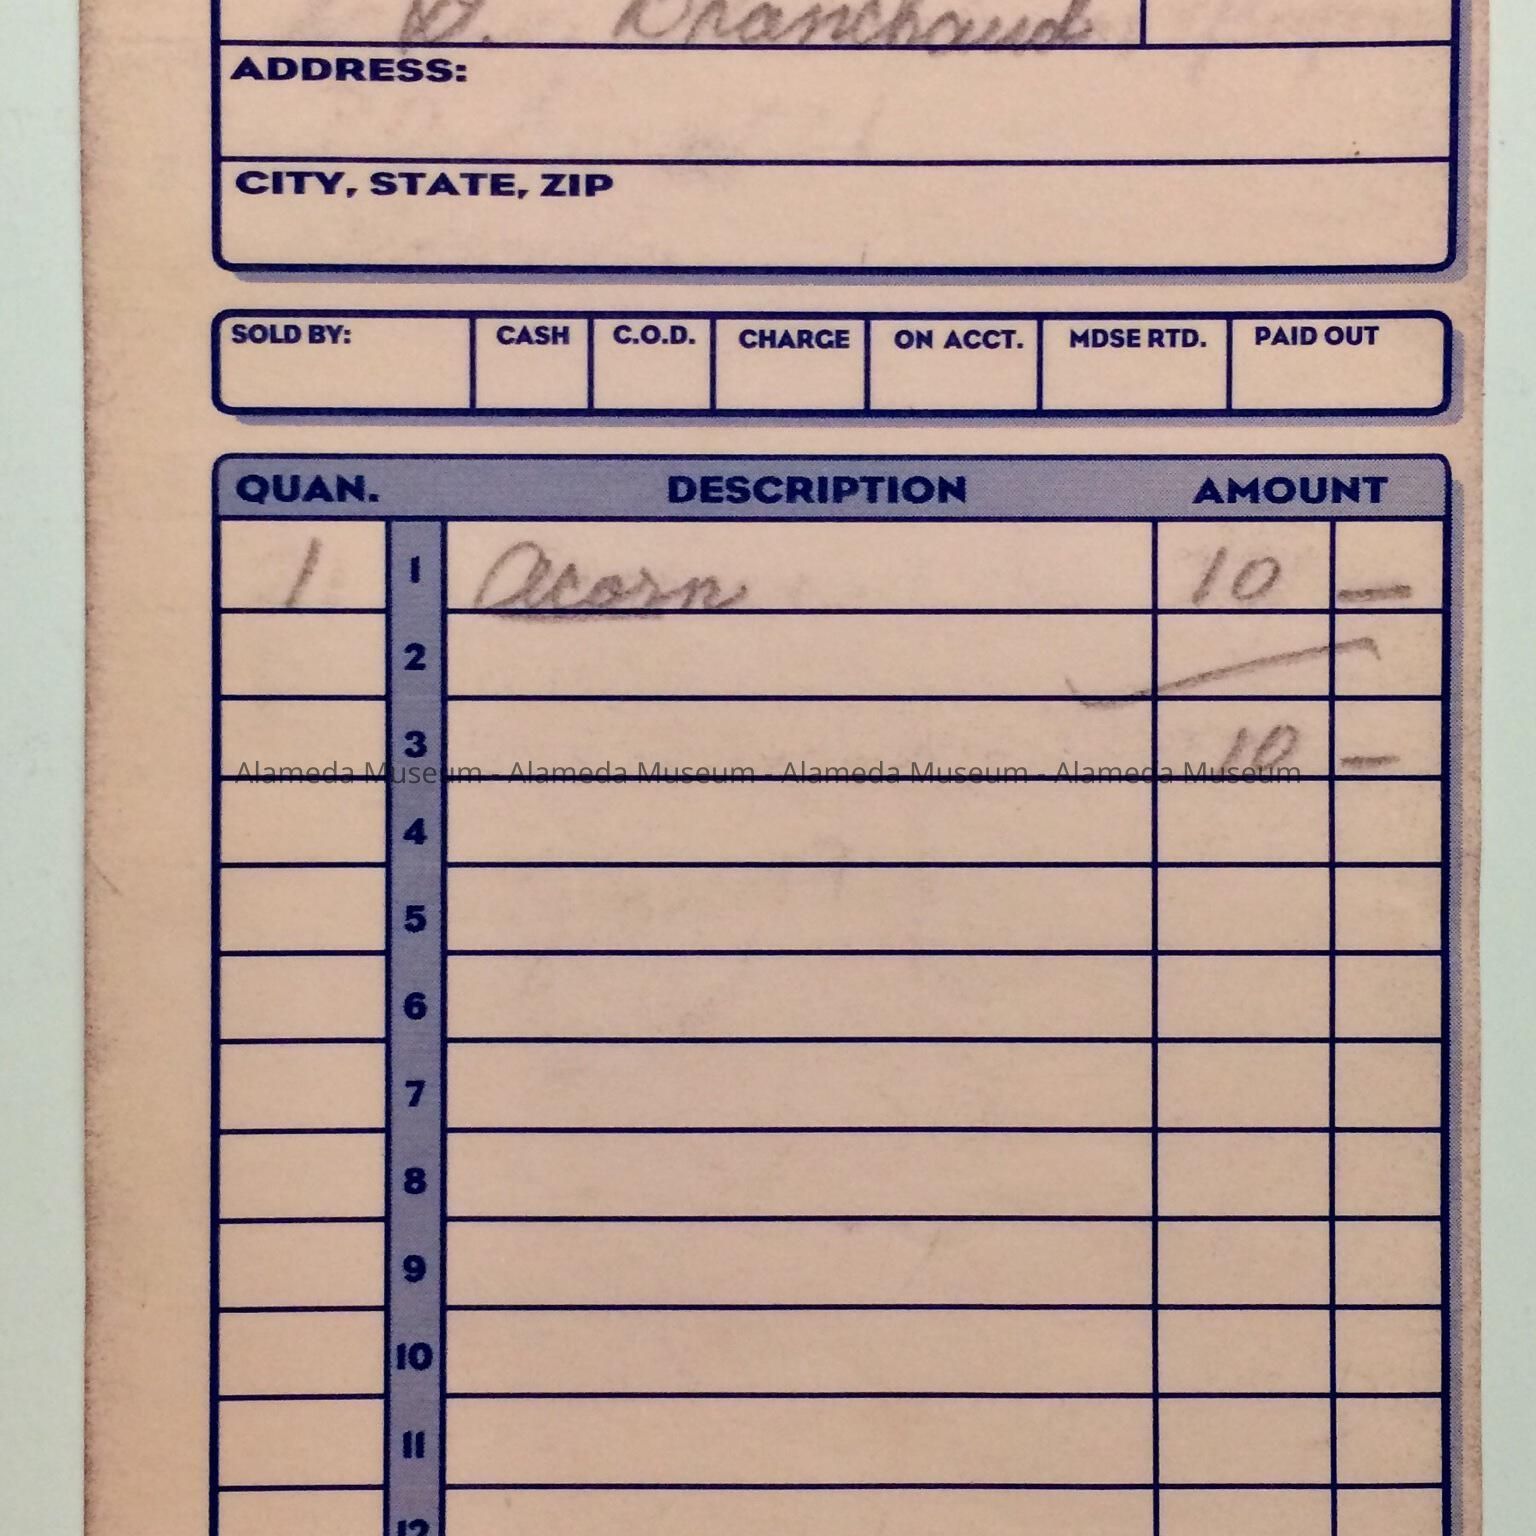 D. Branchaud
ADDRESS:
CITY, STATE, ZIP
SOLD BY: CASH C.O.D. CHARGE ON ACCT. MDSE RTD. PAID OUT
QUAN. DESCRIPTION AMOUNT
1 1 Acorn 10 —
2
3 10 —
Alameda Museum - Alameda Museum - Alameda Museum - Alameda Museum
4
5
6
7
8
9
10
11
12